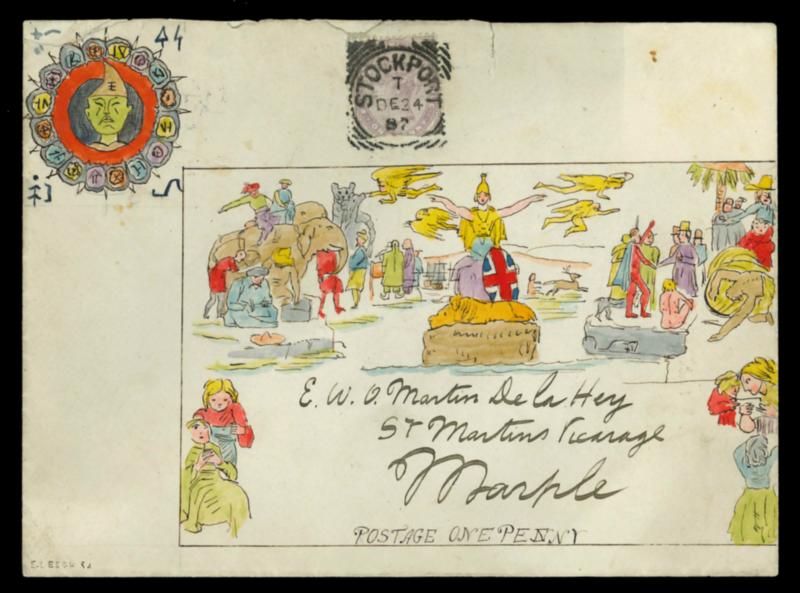 STOCKPORT
T
DE 24
87
E. W. O. Martin De la Hey
St Martins Vicarage
Marple
POSTAGE ONE PENNY